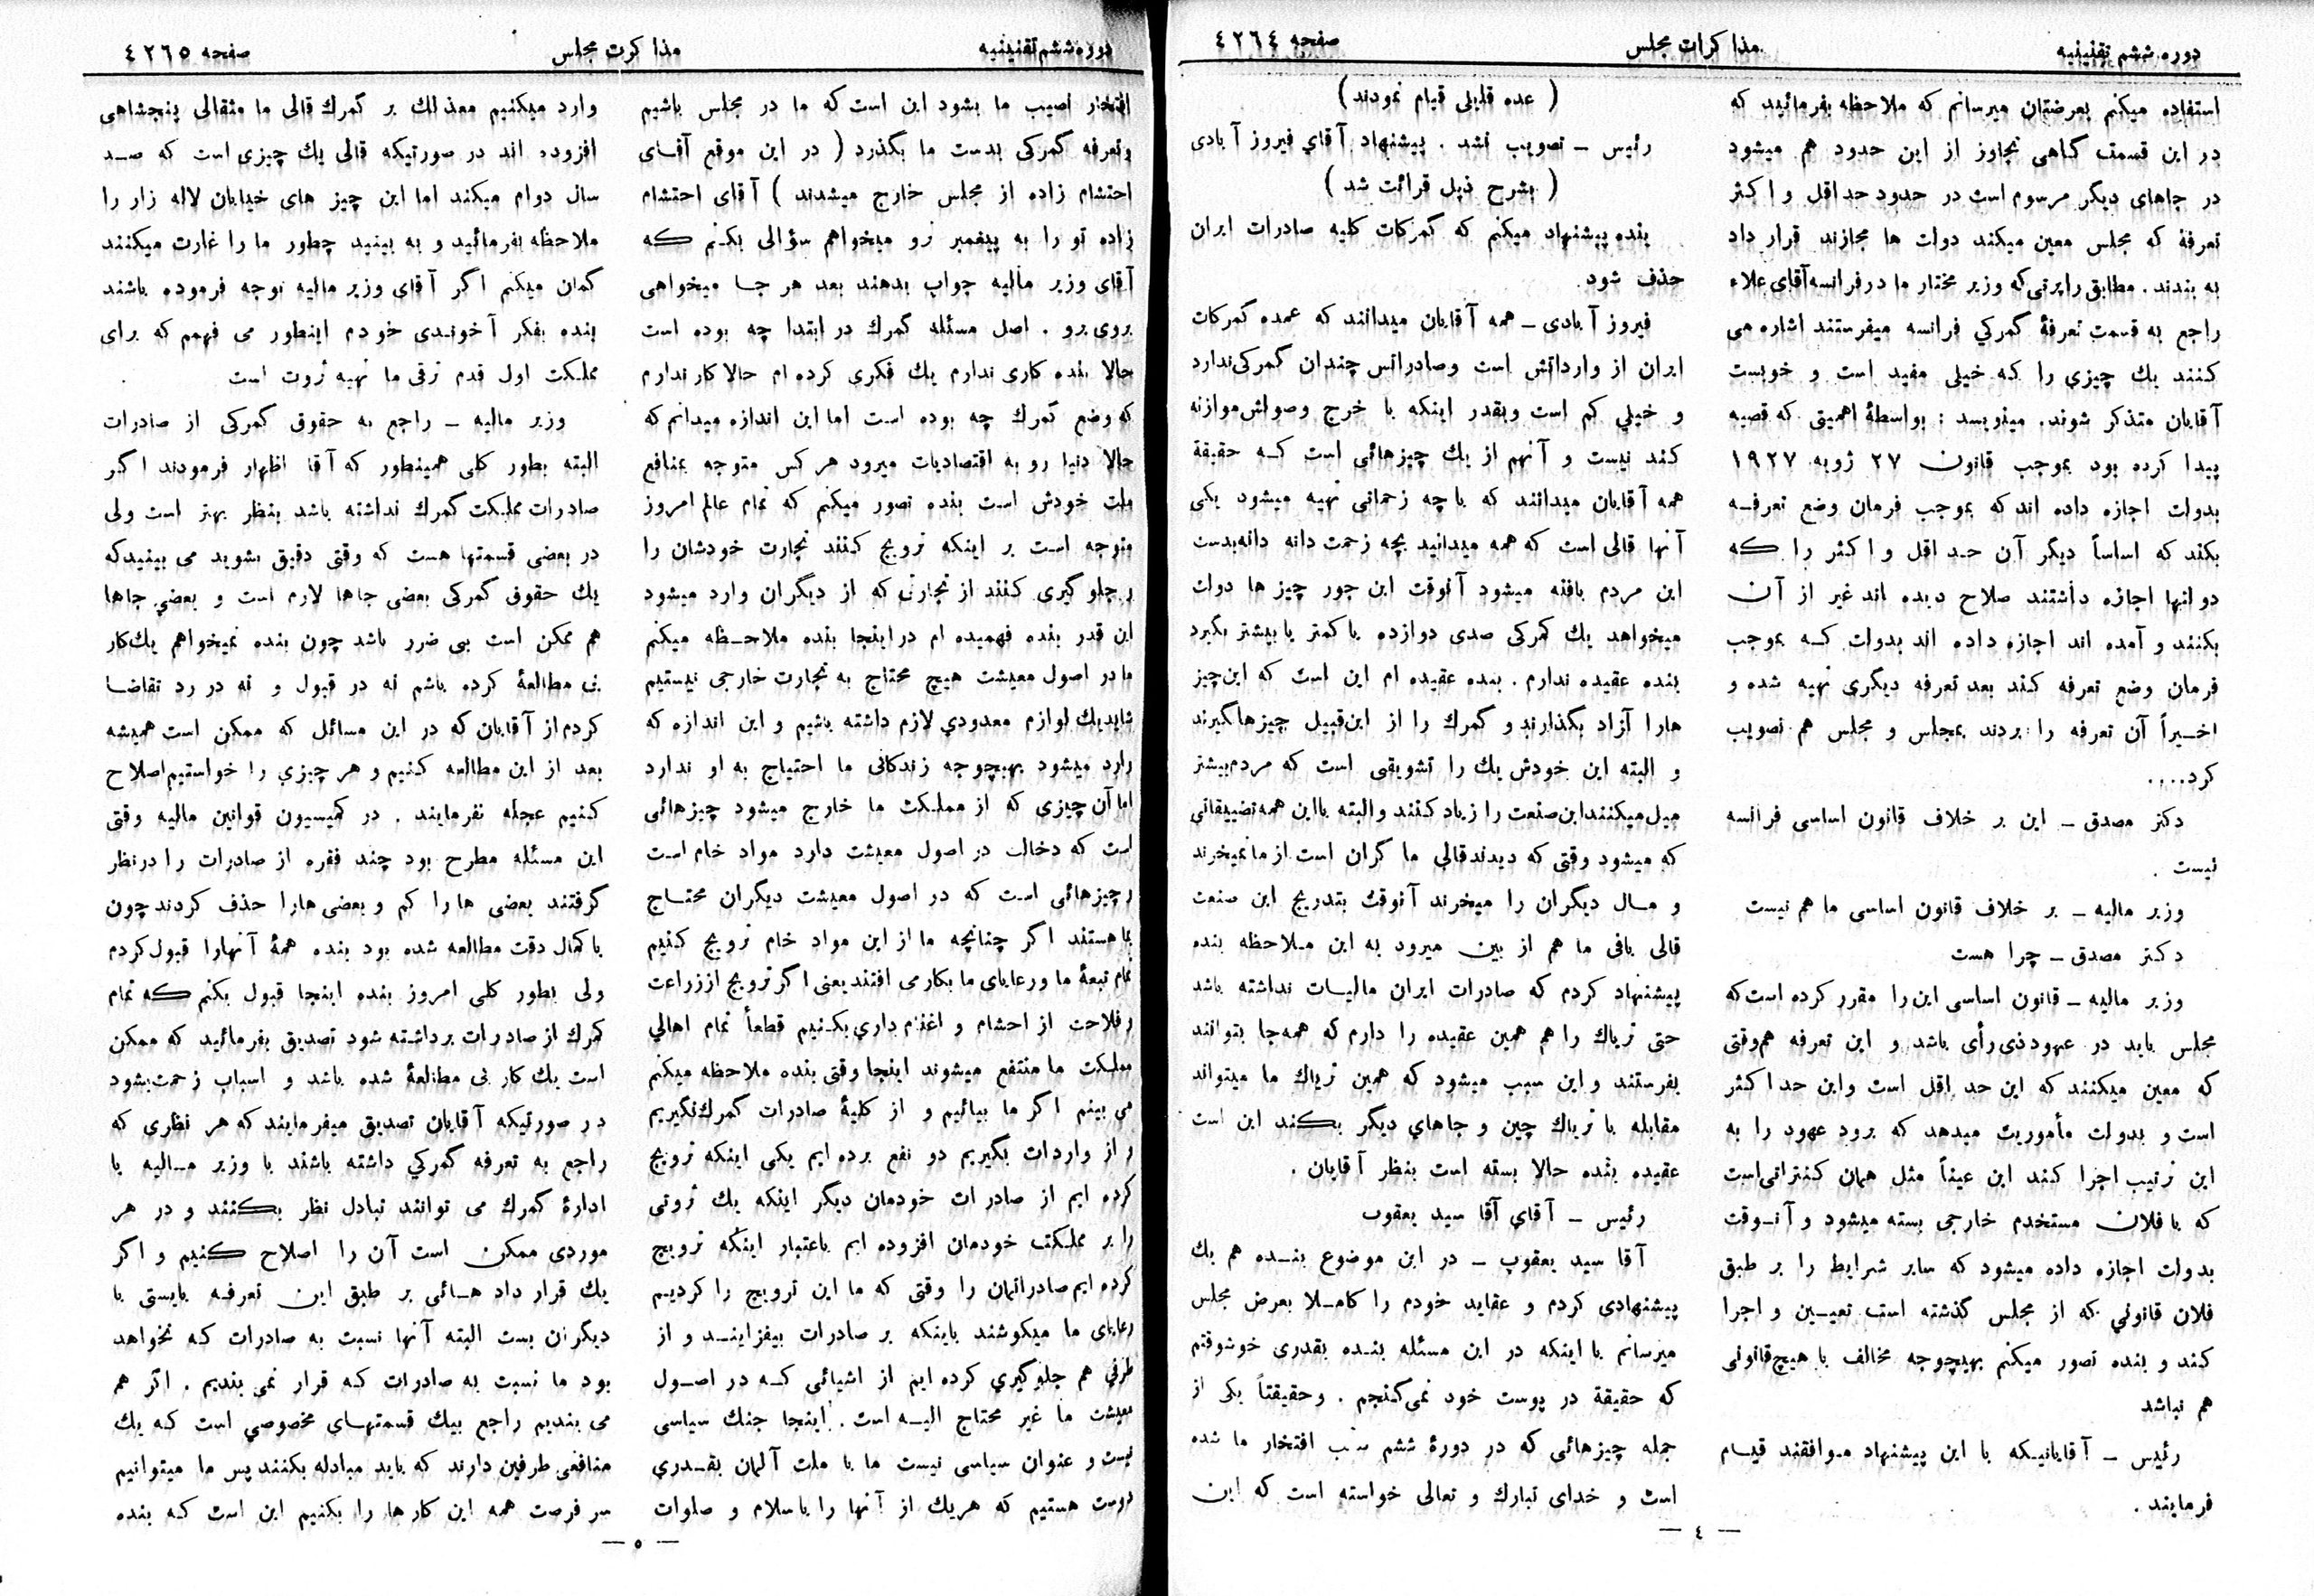 دوره ششم تقنینیه
مذاکرات مجلس
صفحه ٤٢٦٤
استفاده میکنم بعرضتان میرسانم که ملاحظه بفرمائید که
در این قسمت گاهی تجاوز از این حدود هم میشود
در جاهای دیگر مرسوم است در حدود حداقل و اکثر
تعرفهٔ که مجلس معین میکند دولت ها مجازند قرار داد
به بندند . مطابق راپرتی که وزیر مختار ما در فرانسه آقای علاء
راجع به قسمت تعرفهٔ گمرکي فرانسه میفرستند اشاره می
کنند یك چیزي را که خیلی مفید است و خوبست
آقایان متذکر شوند. مینویسد : بواسطهٔ اهمیتی که قصیه
پیدا کرده بود بموجب قانون ٢٧ ژویه ١٩٢٧
بدولت اجازه داده اند که بموجب فرمان وضع تعرفـه
بکند که اساساً دیگر آن حد اقل و اکثر را که
دولتها اجازه داشتند صلاح دیده اند غیر از آن
بکنند و آمده اند اجازه داده اند بدولت کـه بموجب
فرمان وضع تعرفه کند بعد تعرفه دیگری تهیه شده و
اخـیراً آن تعرفه را بردند بمجلس و مجلس هم تصویب
کرد....
دکتر مصدق ـ این بر خلاف قانون اساسی فرانسه
نیست .
وزیر مالیه ـ بر خلاف قانون اساسی ما هم نیست
دکتر مصدق ـ چرا هست
وزیر مالیه ـ قانون اساسی این را مقرر کرده است که
مجلس باید در عهود ذی رأی باشد و این تعرفه هم وقتی
که معین میکنند که این حد اقل است واین حد اکثر
است و بدولت مأموریت میدهد که برود عهود را به
این ترتیب اجرا کند این عیناً مثل همان کنتراتی است
که با فلان مستخدم خارجی بسته میشود و آنـوقت
بدولت اجازه داده میشود که سایر شرایط را بر طبق
فلان قانونی که از مجلس گذشته است تعیـین و اجرا
کند و بنده تصور میکنم بهیچوجه مخالف با هیچ قانونی
هم نباشد
رئیس ـ آقایانیـکه با این پیشنهاد مـوافقند قیـام
فرمایند .
( عده قلیلی قیام نمودند )
رئیس ـ تصویب نشد . پیشنهاد آقاي فیروز آبادی
( بشرح ذیل قرائت شد )
بنده پیشنهاد میکنم که گمرکات کلیه صادرات ایران
حذف شود.
فیروز آبادی ـ همه آقایان میدانند که عمده گمرکات
ایران از وارداتش است وصادراتش چندان گمرکی ندارد
و خیلي کم است وبقدر اینکه با خرج وصولش موازنه
کند نیست و آنهم از یك چیزهائی است کـه حقیقة
همه آقایان میدانند که با چه زحماتی تهیه میشود یکی
آنها قالی است که همه میدانید بچه زحمت دانه دانه بدست
این مردم بافته میشود آنوقت این جور چیز ها دولت
میخواهد یك گمرکی صدی دوازده یا کمتر یا بیشتر بگیرد
بنده عقیده ندارم . بنده عقیده ام این است که این چیز
هارا آزاد بگذارند و گمرك را از این قبیل چیزها نگیرند
و البته این خودش یك را تشویقی است که مردم بیشتر
میل میکنند این صنعت را زیاد کنند والبته با این همه تضییقاتی
که میشود وقتی که دیدند قالی ما گران است از ما نمیخرند
و مـال دیگران را میخرند آنوقت بتدریج این صنعت
قالی بافی ما هم از بین میرود به این ملاحظه بنده
پیشنهاد کردم که صادرات ایران مالیات نداشته باشد
حتی تریاك را هم همین عقیده را دارم که همه جا بتوانند
بفرستند و این سبب میشود که همین تریاك ما میتواند
مقابله با تریاك چین و جاهاي دیگر بکند این است
عقیده بنده حالا بسته است بنظر آقایان .
رئیس ـ آقاي آقا سید یعقوب
آقا سید یعقوب ـ در این موضوع بنـده هم یك
پیشنهادی کردم و عقاید خودم را کامـلا بعرض مجلس
میرسانم با اینکه در این مسئله بنـده بقدری خوشوقتم
که حقیقة در پوست خود نمی گنجم . وحقیقتاً یکی از
جمله چیزهائی که در دورهٔ ششم سبب افتخار ما شده
است و خدای تبارك و تعالی خواسته است که این
ـ ٤ ـ
دوره ششم تقنینیه
مذاکرت مجلس
صفحه ٤٢٦٥
افتخار نصیب ما بشود این است که ما در مجلس باشیم
وتعرفه گمرکی بدست ما بگذرد ( در این موقع آقـای
احتشام زاده از مجلس خارج میشدند ) آقای احتشام
زاده تو را به پیغمبر نرو میخواهم سؤالی بکـنم کـه
آقای وزیر مالیه جواب بدهند بعد هر جـا میخواهی
بروی برو . اصل مسئله گمرك در ابتدا چه بوده است
حالا بنده کاری ندارم یك فکری کرده ام حالا کار ندارم
که وضع گمرك چه بوده است اما این اندازه میدانم که
حالا دنیا رو به اقتصادیات میرود هر کس متوجه بمنافع
ملت خودش است بنده تصور میکنم که تمام عالم امروز
متوجه است بر اینکه ترویج کنند تجارت خودشان را
و جلوگیری کنند از تجارتی که از دیگران وارد میشود
این قدر بنده فهمیده ام در اینجا بنده ملاحـظه میکنم
ما در اصول معیشت هیچ محتاج به تجارت خارجی نیستیم
شاید یك لوازم معدودي لازم داشته باشیم و این اندازه که
وارد میشود بهیچوجه زندگانی ما احتیاج به او ندارد
اما آن چیزی که از مملکت ما خارج میشود چیزهائی
است که دخالت در اصول معیشت دارد مواد خام است
و چیزهائی است که در اصول معیشت دیگران محتـاج
بما هستند اگر چنانچه ما از این مواد خام ترویج کنیم
تمام تبعهٔ ما ورعایای ما بکار می افتند یعنی اگر ترویج از زراعت
وفلاحت از احشام و اغنام داري بکنیم قطعاً تمام اهالي
مملکت ما منتفع میشوند اینجا وقتی بنده ملاحظه میکنم
می بینم اگر ما بیائیم و از کلیهٔ صادرات گمرك نگیریم
و از واردات بگیریم دو نفع برده ایم یکی اینکه ترویج
کرده ایم از صادرات خودمان دیگر اینکه یك ثروتی
را بر مملکت خودمان افزوده ایم باعتبار اینکه ترویج
کرده ایم صادراتمان را وقتی که ما این ترویج را کردیـم
رعایای ما میکوشند باینکه بر صادرات بیفزاینـد و از
طرفي هم جلوگیري کرده ایم از اشیائی کـه در اصـول
معیشت ما غیر محتاج الیـه است . اینجا جنك سیاسی
نیست و عنوان سیاسی نیست ما با ملت آلمان بقـدري
دوست هستیم که هریك از آنها را باسلام و صلوات
وارد میکنیم معذلك بر گمرك قالی ما مثقالی پنجشاهی
افزوده اند در صورتیکه قالی یك چیزی است که صـد
سال دوام میکند اما این چیز های خیابان لاله زار را
ملاحظه بفرمائید و به بینید چطور ما را غارت میکنند
گمان میکنم اگر آقای وزیر مالیه توجه فرموده باشند
بنده بفکر آخونـدی خودم اینطور می فهمم که برای
مملکت اول قدم ترقی ما تهیه ثروت است
وزیر مالیه ـ راجع به حقوق گمرکی از صادرات
البته بطور کلی همینطور که آقا اظهار فرمودند اگر
صادرات مملکت گمرك نداشته باشد بنظر بهتر است ولی
در بعضی قسمتها هست که وقتی دقیق بشوید می بینید که
یك حقوق گمرکی بعضی جاها لازم است و بعضي جاها
هم ممکن است بی ضرر باشد چون بنده نمیخواهم یك کار
بی مطالعهٔ کرده باشم نه در قبول و نه در رد تقاضـا
کردم از آقایان که در این مسائل که ممکن است همیشه
بعد از این مطالعه کنیم و هر چیزي را خواستیم اصلاح
کنیم عجله نفرمایند . در کمیسیون قوانین مالیه وقتی
این مسئله مطرح بود چند فقره از صادرات را در نظر
گرفتند بعضی ها را کم و بعضی هارا حذف کردند چون
با کمال دقت مطالعه شده بود بنده همهٔ آنهارا قبول کردم
ولی بطور کلی امروز بنده اینجا قبول بکنم که تمام
گمرك از صادرات برداشته شود تصدیق بفرمائید که ممکن
است یك کار بی مطالعهٔ شده باشد و اسباب زحمت بشود
در صورتیکه آقایان تصدیق میفرمایند که هر نظری که
راجع به تعرفه گمرکي داشته باشند با وزیر مـالیه یا
ادارهٔ گمرك می توانند تبادل نظر بکنند و در هر
موردی ممکن است آن را اصلاح کنیم و اگر
یك قرار داد هـائی بر طبق این تعرفـه بایستی با
دیگران بست البته آنها نسبت به صادرات که نخواهد
بود ما نسبت به صادرات که قرار نمی بندیم . اگر هم
می بندیم راجع بیك قسمتهـای مخصوصي است که یك
منافعی طرفین دارند که باید مبادله بکنند پس ما میتوانیم
سر فرصت همه این کارها را بکنیم این است که بنده
ـ ٥ ـ